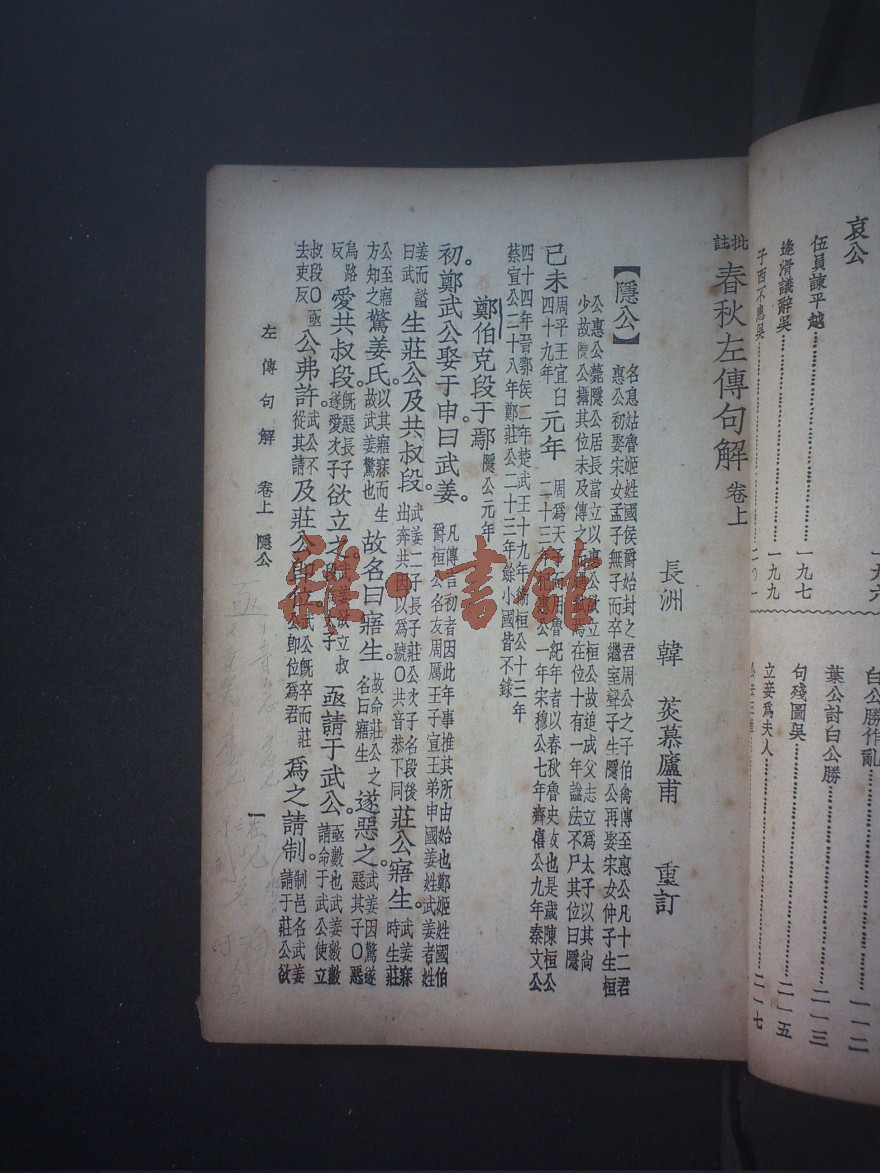 哀公
一九六
伍員諫平越……一九七
逢滑議辭吳……一九九
子西不患吳……二〇一
白公勝作亂……二一二
葉公討白公勝……二一三
句殘圖吳……二一五
立妾爲夫人……二一七
批註春秋左傳句解 卷上
長洲 韓 菼慕廬甫 重訂
【隱公】名息姑魯姬姓國侯爵始封之君周公之子伯禽傳至惠公凡十二君
惠公初娶宋女孟子無子而卒繼室聲子生隱公再娶宋女仲子生桓
公惠公薨隱公居長當立以惠公欲立桓公故追成父志立爲太子以其尚
少故隱公攝其位未及傳之在位十有一年謚法不尸其位曰隱
己未周平王宜臼四十九年元年周爲天子用魯紀年者以春秋魯史故也是歲陳桓公
二十三年杞武公一年宋穆公七年齊僖公九年秦文公
四十四年晉鄂侯二年楚武王十九年衛桓公十三年
蔡宣公二十八年鄭莊公二十三年餘小國皆不錄
鄭伯克段于鄢隱公元年
初。鄭武公娶于申曰武姜。凡傳言初者因此年事推其所由始也鄭姬姓國伯
爵桓公名友周厲王子宣王弟申國姜姓武姜者姓
姜而謚曰武生莊公及共叔段。武姜二子長子莊公次子名段後
出奔共因以爲號〇共音恭下同莊公寤生。武姜寐時生莊
公至寤方知之驚姜氏。以其寤寐而生故武姜驚也故名曰寤生。故命莊公之名曰寤生遂惡之。武姜因驚遂惡其子〇惡
烏路反愛共叔段。既惡長子遂愛次子欲立之。武姜欲立叔段爲太子亟請于武公。亟數也武姜數數請命于武公使立
叔段〇亟去吏反公弗許。武公不從其請及莊公即位。武公既卒而莊公即位爲君爲之請制。制邑名武姜請于莊公欲
左傳句解 卷上 隱公
一
雅·書館